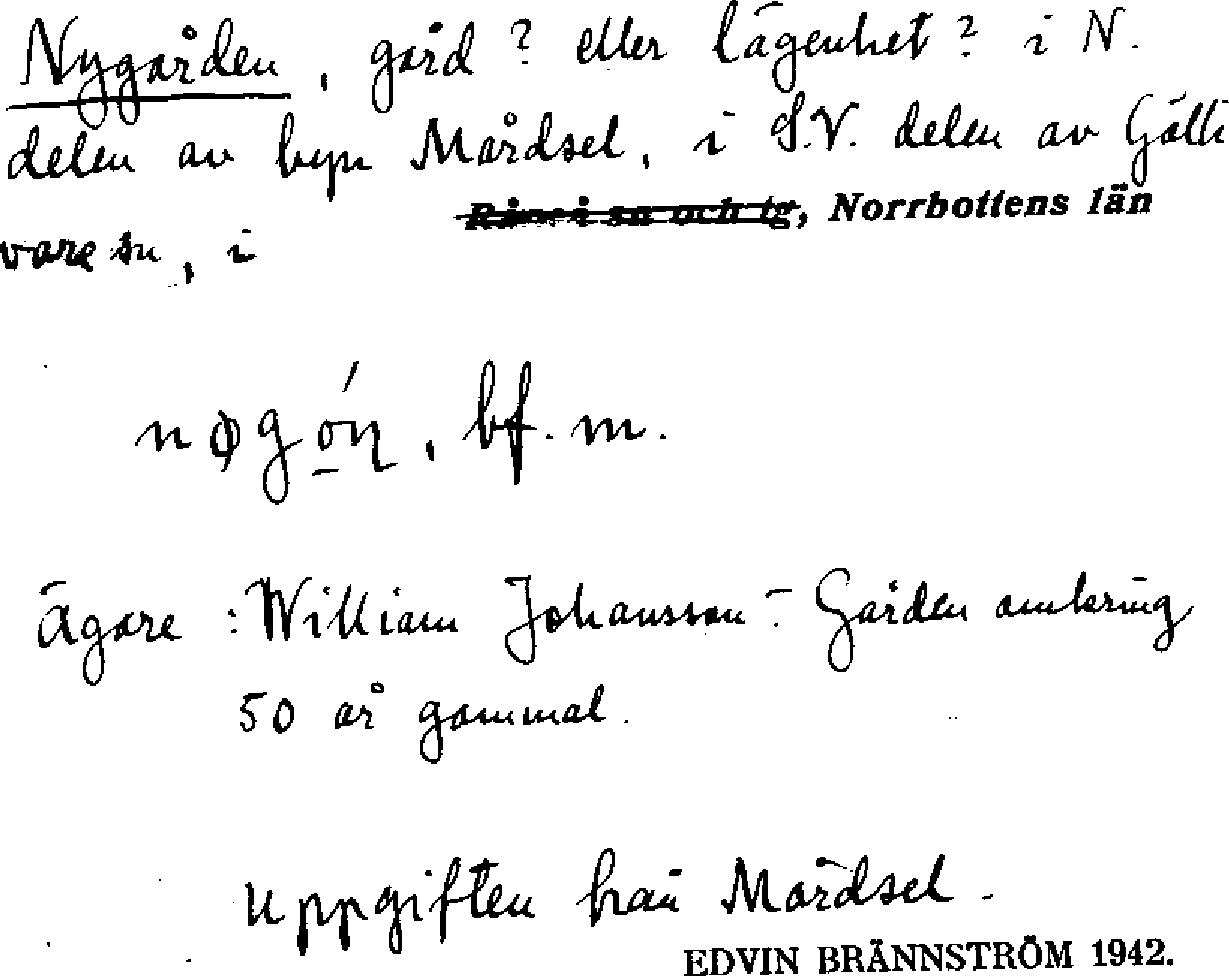 Nygården, gård? eller lägenhet? i N.
delen av byn Mårdsel, i S.V. delen av Gälli
Råneå sn och tg, Norrbottens län
vare sn, i
bf. m.
Ägare: William Johansson - Gården omkring
50 år gammal.
Uppgiften från Mårdsel.
EDVIN BRÄNNSTRÖM 1942.